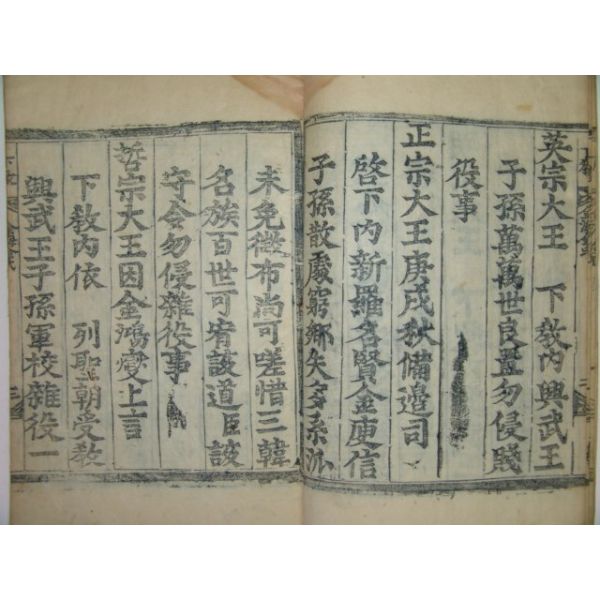 英宗大王 下敎內興武王
子孫萬萬世良置勿侵賤
役事
正宗大王庚戌秋備邊司
啓下內新羅名賢金庾信
子孫散處窮鄕失其系派
未免徵布尙可嗟惜三韓
名族百世可宥該道臣誠
守令勿侵雜役事
哲宗大王因金鴻燮上言
下敎內依 列聖朝受敎
興武王子孫軍校雜役一